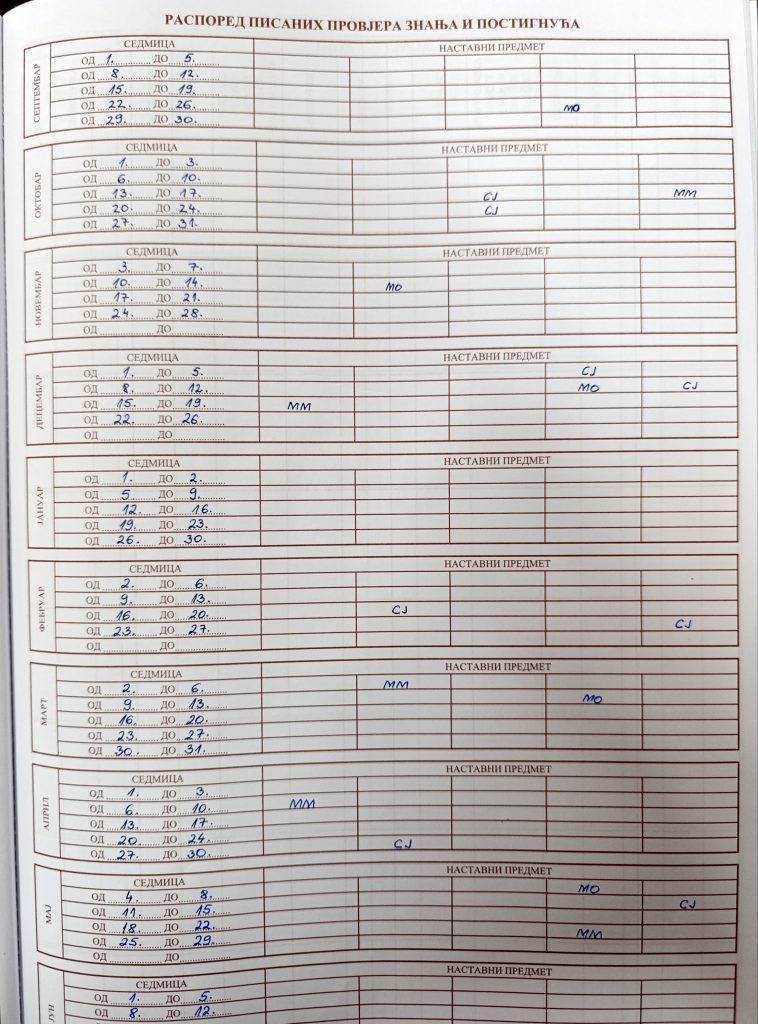 РАСПОРЕД ПИСАНИХ ПРОВЈЕРА ЗНАЊА И ПОСТИГНУЋА
СЕПТЕМБАР
СЕДМИЦА НАСТАВНИ ПРЕДМЕТ
ОД 1. ДО 5.
ОД 8. ДО 12.
ОД 15. ДО 19.
ОД 22. ДО 26. МО
ОД 29. ДО 30.
ОКТОБАР
СЕДМИЦА НАСТАВНИ ПРЕДМЕТ
ОД 1. ДО 3.
ОД 6. ДО 10.
ОД 13. ДО 17. СЈ ММ
ОД 20. ДО 24. СЈ
ОД 27. ДО 31.
НОВЕМБАР
СЕДМИЦА НАСТАВНИ ПРЕДМЕТ
ОД 3. ДО 7.
ОД 10. ДО 14. МО
ОД 17. ДО 21.
ОД 24. ДО 28.
ОД ДО
ДЕЦЕМБАР
СЕДМИЦА НАСТАВНИ ПРЕДМЕТ
ОД 1. ДО 5. СЈ
ОД 8. ДО 12. МО СЈ
ОД 15. ДО 19. ММ
ОД 22. ДО 26.
ОД ДО
ЈАНУАР
СЕДМИЦА НАСТАВНИ ПРЕДМЕТ
ОД 1. ДО 2.
ОД 5 ДО 9.
ОД 12. ДО 16.
ОД 19. ДО 23.
ОД 26. ДО 30.
ФЕБРУАР
СЕДМИЦА НАСТАВНИ ПРЕДМЕТ
ОД 2. ДО 6.
ОД 9. ДО 13.
ОД 16. ДО 20. СЈ
ОД 23. ДО 27. СЈ
ОД ДО
МАРТ
СЕДМИЦА НАСТАВНИ ПРЕДМЕТ
ОД 2. ДО 6. ММ
ОД 9. ДО 13. МО
ОД 16. ДО 20.
ОД 23. ДО 27.
ОД 30. ДО 31.
АПРИЛ
СЕДМИЦА НАСТАВНИ ПРЕДМЕТ
ОД 1. ДО 3.
ОД 6. ДО 10. ММ
ОД 13. ДО 17.
ОД 20. ДО 24.
ОД 27. ДО 30. СЈ
МАЈ
СЕДМИЦА НАСТАВНИ ПРЕДМЕТ
ОД 4. ДО 8. МО
ОД 11. ДО 15. СЈ
ОД 18. ДО 22.
ОД 25. ДО 29. ММ
ОД ДО
ЈУН
СЕДМИЦА НАСТАВНИ ПРЕДМЕТ
ОД 1. ДО 5.
ОД 8. ДО 12.